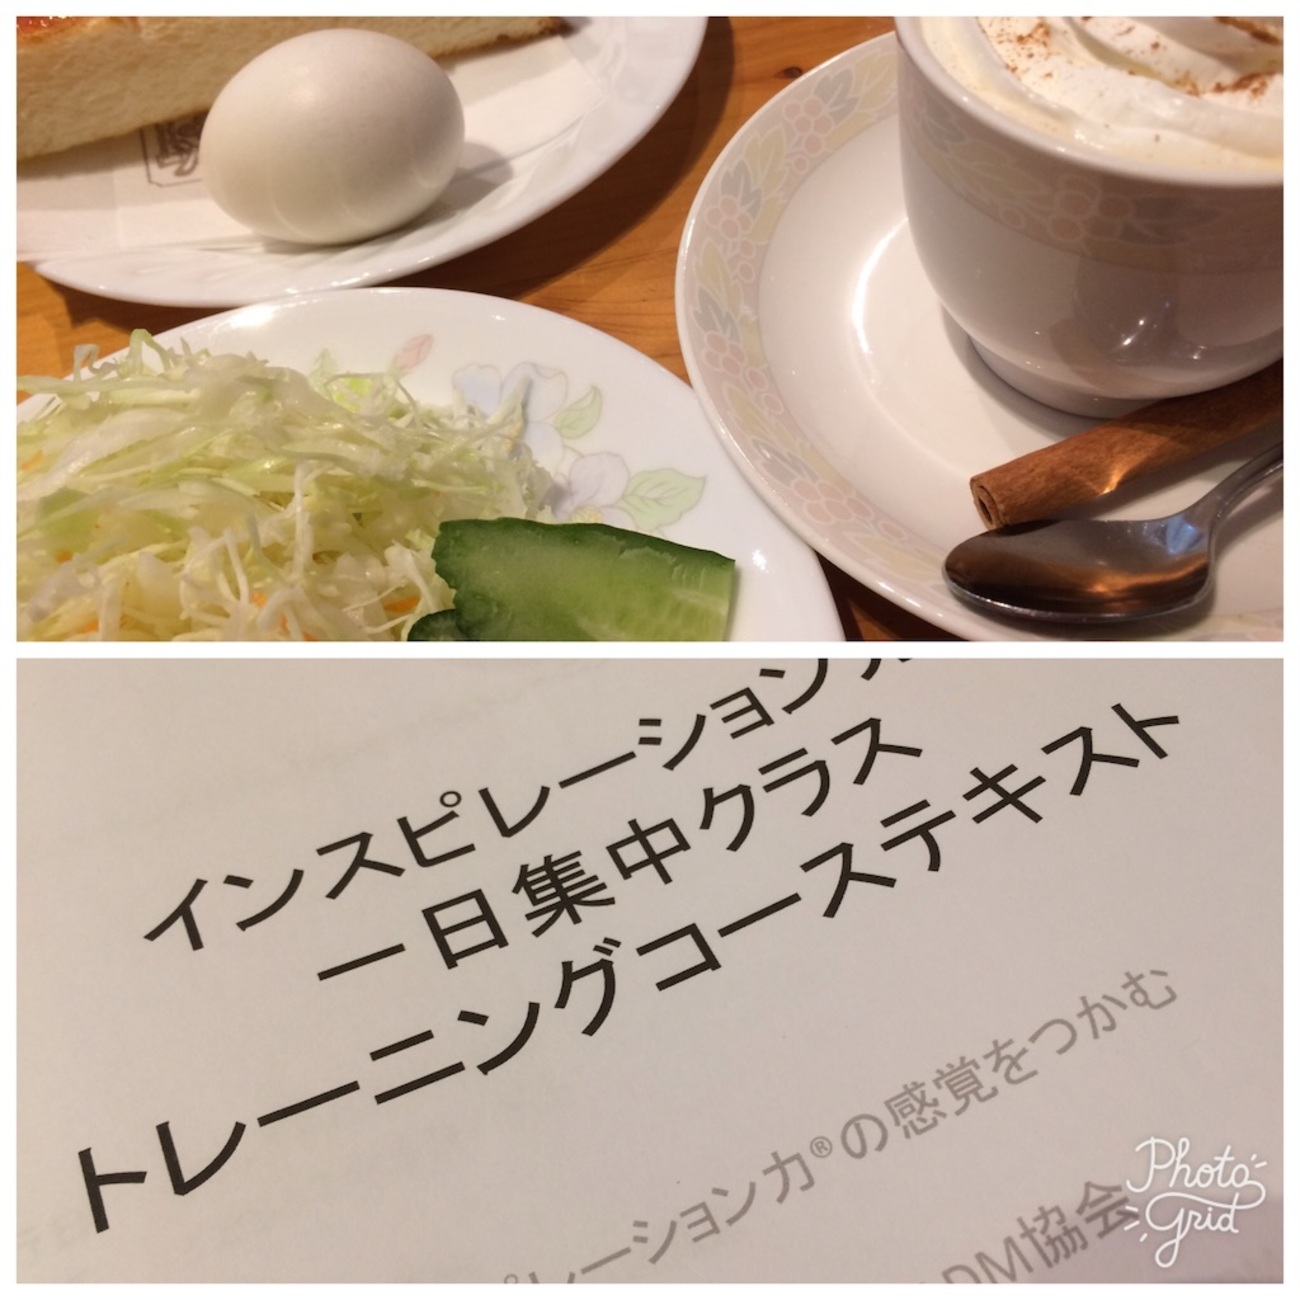 インスピレーション力
一日集中クラス
トレーニングコーステキスト
ピレーション力®の感覚をつかむ
ADM協会
Photo
Grid